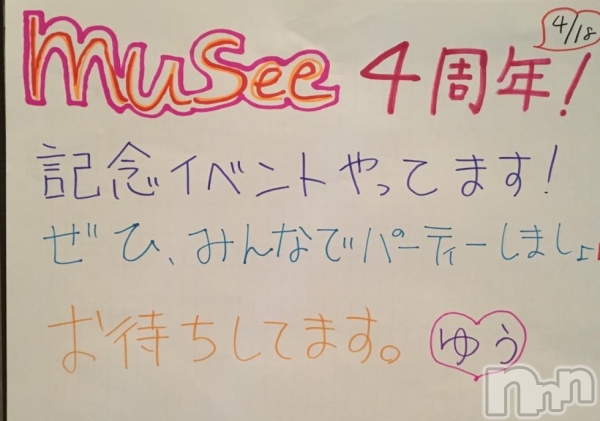 4/18
musee 4周年！
記念イベントやってます！
ぜひ、みんなでパーティーしましょ
お待ちしてます。ゆう
nnn